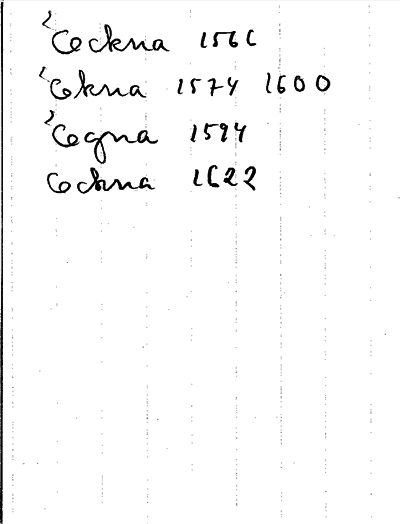 ²Cockna 1566
²Cokna 1574 1600
²Cogna 1594
Cockna 1622